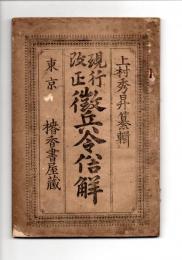 上村秀昇纂輯
現行
改正
徴兵令俗解
東京 椿香書屋蔵